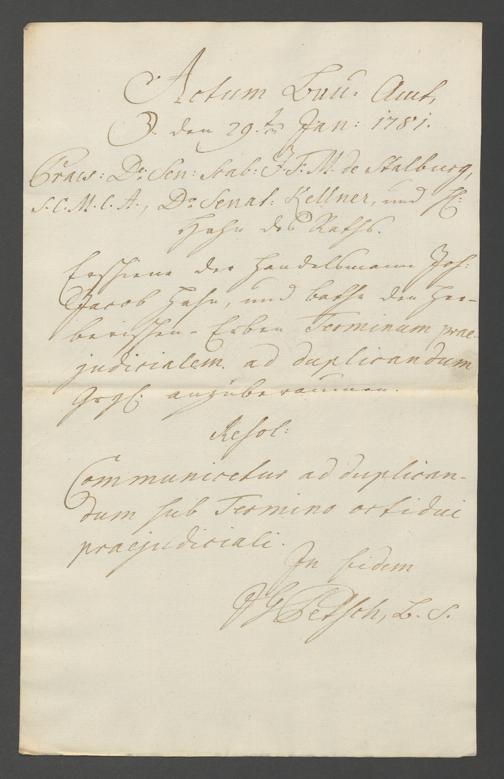 Actum Bau: Amt,
den 29.ten Jan: 1781.
Praes: Do: Sen: Scab: J. F. M. de Stalburg,
S. C. M. C. A., Do Senat: Kellner, und H:
Hahn des Raths.
Erschiene der Handelsmann Joh:
Jacob Hahn, und bathe den Her-
berischen-Erben Terminum prae-
judicialem ad duplicandum
Grgl: anzuberaumen.
Resol:
Communicetur ad duplican-
dum sub Termino octidui
praejudiciali.
In fidem
Petsch, B. S.